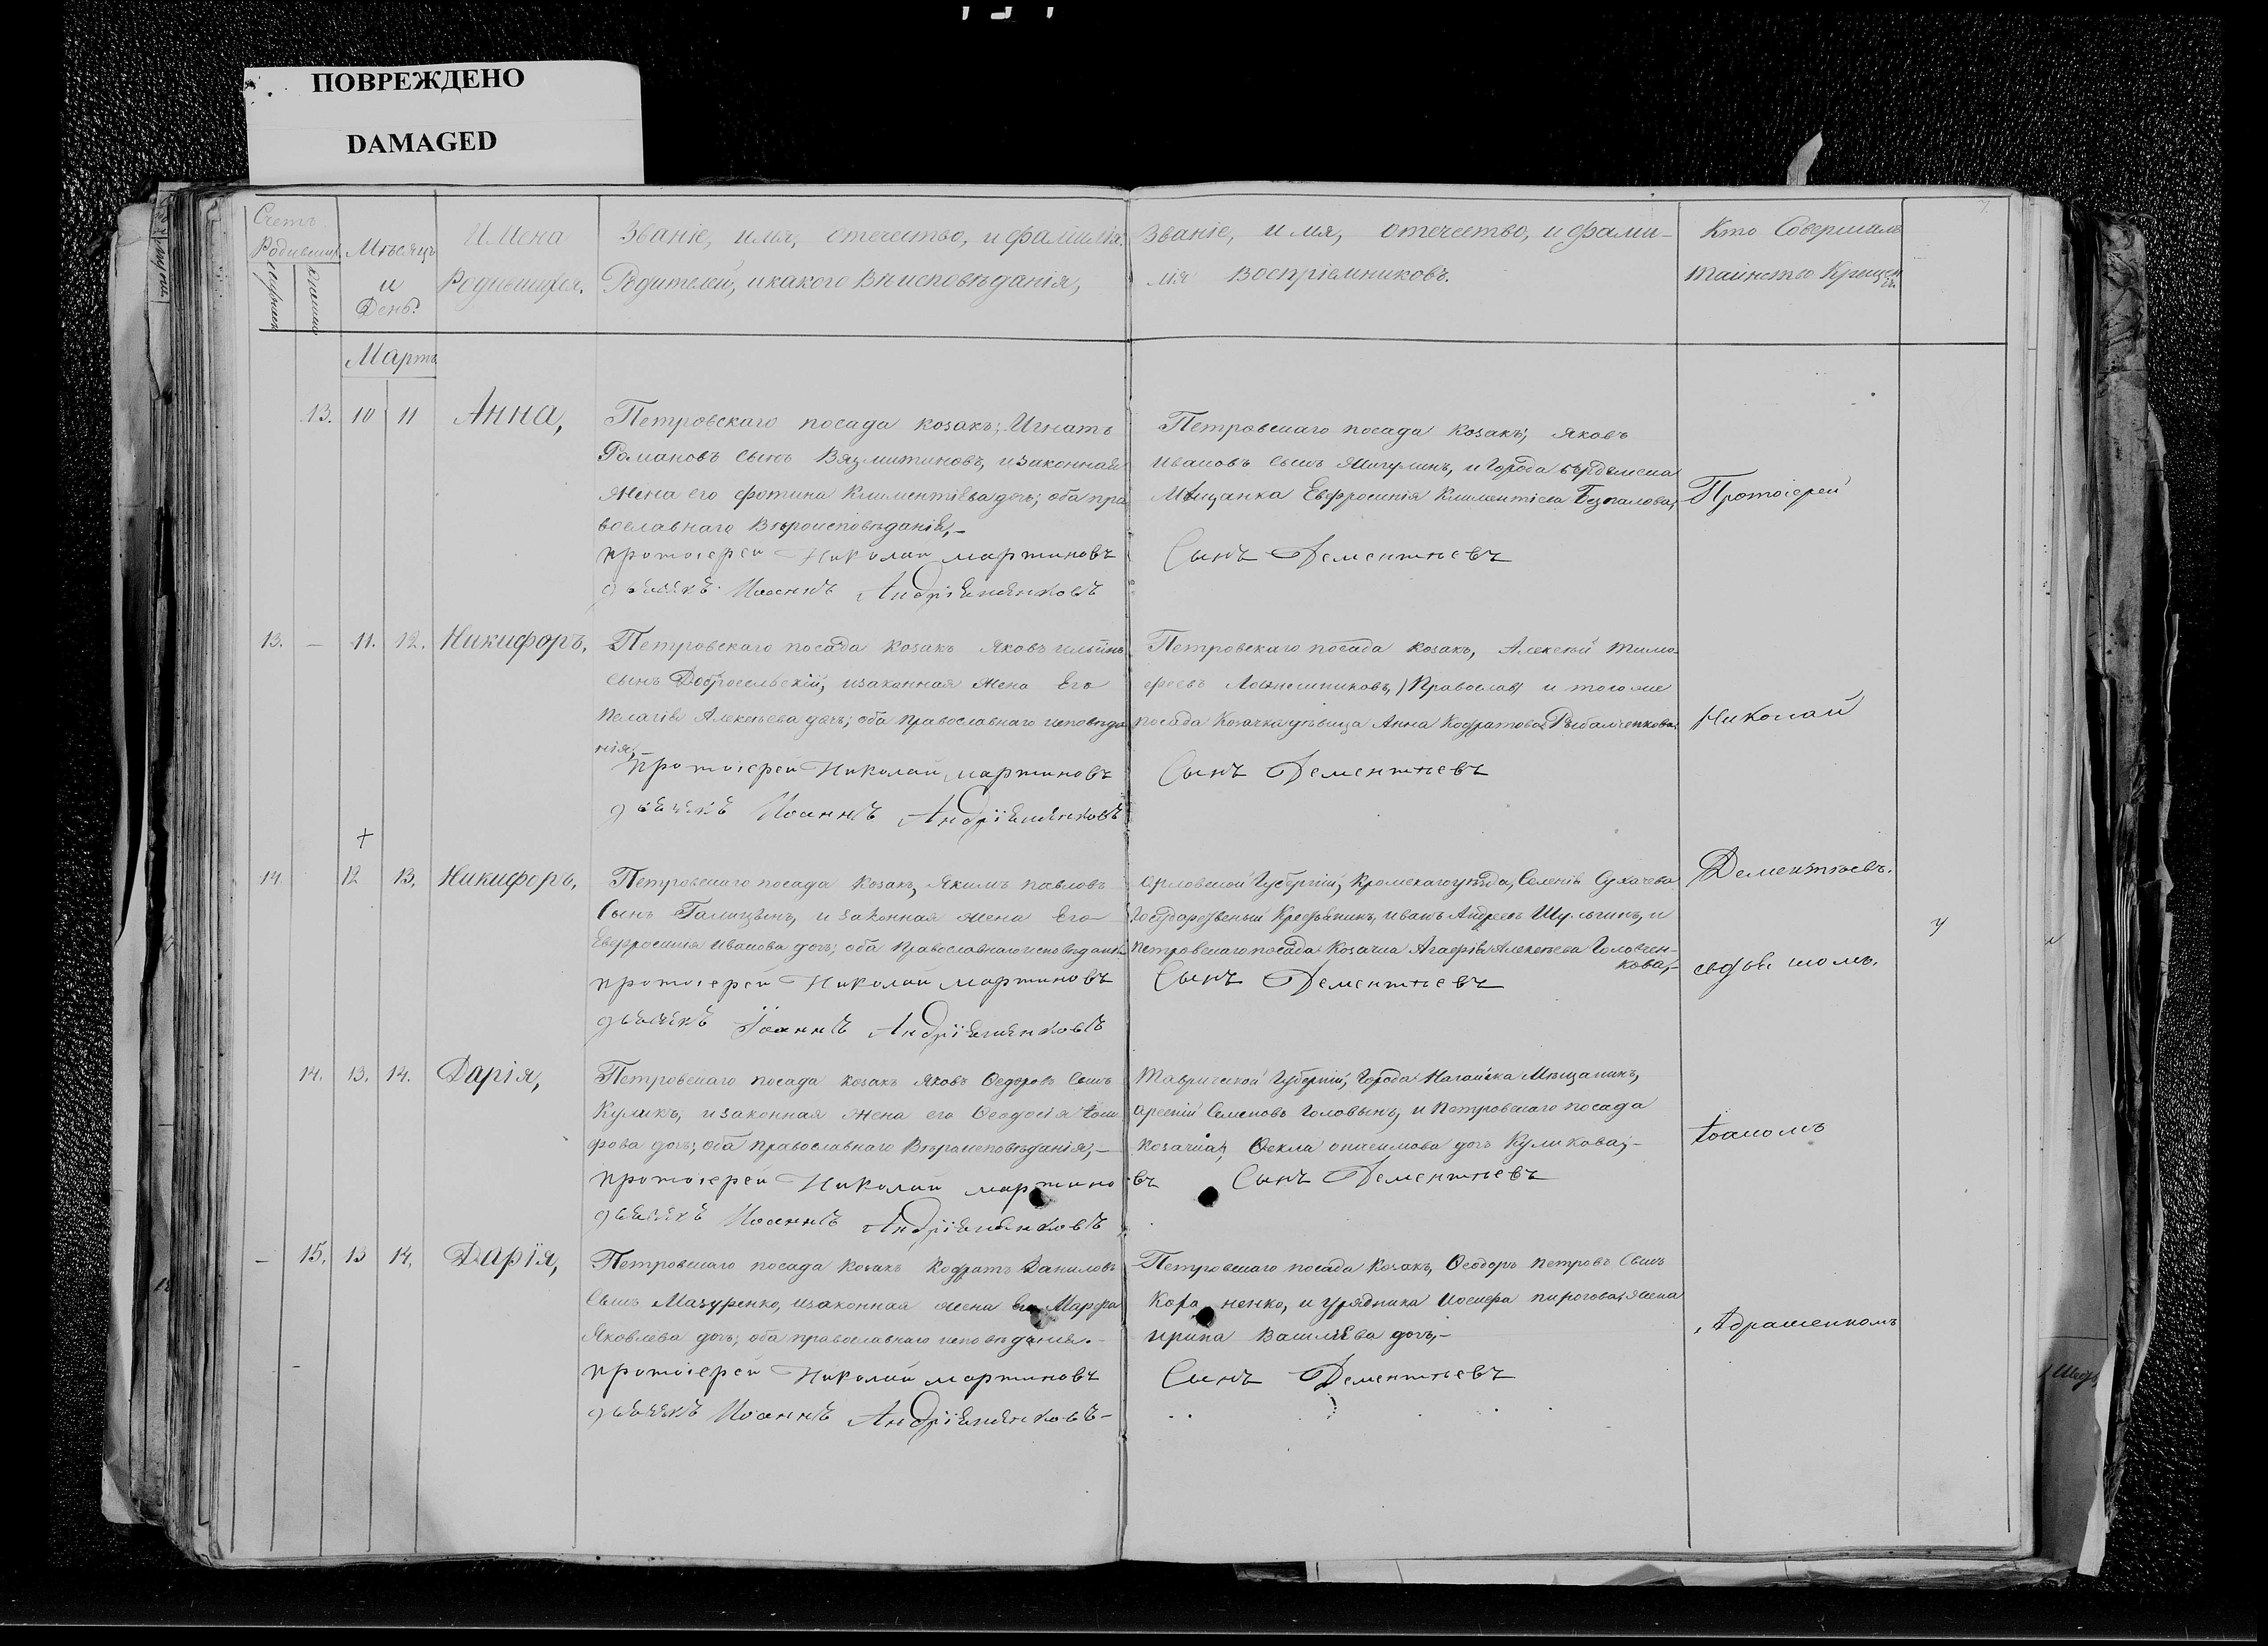 ПОВРЕЖДЕНО
DAMAGED
Счетъ
Родивших.
Мѣсяцъ
и
День.
Имена
Родившихся.
Званіе, имя, отечество, и фамилія
Родителей, и какого Вѣисповѣданія,
Званіе, имя, отечество, и фами-
лія Воспріемниковъ.
Кто Совершалъ
таинство Крещен
Мартъ
13. 10 11 Анна,
Петровскаго посада козакъ; Игнатъ
Романовъ сынъ Вязмитиновъ, и законная
жена его Фотина Климентіева дочь; оба пра
вославнаго Вѣроисповѣданіе,-
протоіерей Николай мартиновъ
дьячекъ Иоаннъ Андріешенковъ
Петровскаго посада Козакъ; Яковъ
Ивановъ сынъ Мигулинъ, и Города бердянска
Мѣщанка Евфросинія Климентіева Безпалова,
Сынъ Дементьевъ
Протоіерей
13. — 11. 12. Никифоръ,
Петровскаго посада козакъ Яковъ ильинъ
сынъ Добросельскій, и законная жена Его
Пелагія Алексѣева дочь; оба православнаго исповѣда
нія,-
протоіерей Николай мартиновъ
дьячекъ Иоаннъ Андріешенковъ
Петровскаго посада козакъ, Алексѣй тимо-
феевъ /Православ/ и того же
посада Козачка дѣвица Анна Кодратова Рыбалченкова
Сынъ Дементьевъ
Николай
+
14. 12 13, Никифоръ,
Петровскаго посада Козакъ, Якимъ павловъ
Сынъ Галицынъ, и законная жена Его
Евфросинія Иванова дочь; оба Православнаго исповѣданія
протоіерей Николай мартиновъ
дьячекъ Іоаннъ Андріешенковъ
Орловской Губерніи, Кромскаго уѣзда, Селенія Сухачева
Государственый Крестьянинъ, иванъ Андреевъ Шульгинъ, и
Петровскаго посада Козачка Агафія Алексѣева Головчен-
кова,-
Сынъ Дементьевъ
Дементьевъ.
14. 13. 14. Дарія,
Петровскаго посада козакъ Яковъ Ѳедоровъ сынъ
Куликъ, и законная жена его Ѳеодосія
фова дочь; оба православнаго Вѣроисповѣданія,-
протоіерей Николай мартино
въ Сынъ Дементьевъ
дьячекъ Иоаннъ Андріешенковъ
Таврической Губерніи, Города Нагайска Мѣщанинъ,
арсеній Семеновъ Головынъ, и Петровскаго посада
козачка, Ѳекла онисимова дочь Куликова,-
— 15. 13 14, Дарія,
Петровскаго посада козакъ Кодратъ Даниловъ
Сынъ Мазуренко, и законная жена его Марфа
Яковлева дочь; оба православнаго исповѣданія.-
протоіерей Николай мартиновъ
дьячекъ Иоаннъ Андріешенковъ-
Петровскаго посада Козакъ, Ѳеодоръ Петровъ Сынъ
ненко, и урядника Иосифа пирогова, жена
ирина Василіева дочь,-
Сынъ Дементьевъ